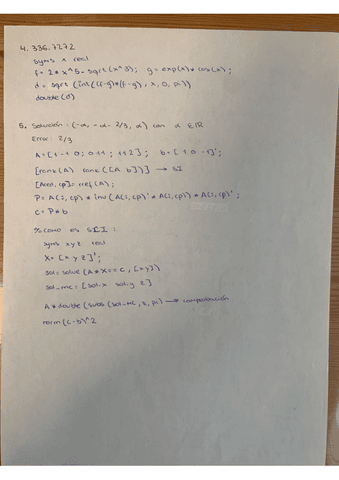 4. 336.7272
syms x real
f = 2*x^5 - sqrt(x^3); g = exp(x)*cos(x);
d = sqrt(int((f-g)*(f-g), x, 0, pi))
double(d)
5. Solución: (-α, -α-2/3, α) con α ∈ ℝ
Error: 2/3
A = [1 -1 0; 0 1 1; 1 1 2]; b = [1 0 -1]';
[rank(A) rank([A b])] → SI
[Aesc, cp] = rref(A);
P = A(:, cp) * inv(A(:, cp)' * A(:, cp)) * A(:, cp)';
c = P*b
% como es SCI:
syms x y z real
X = [x y z]';
sol = solve(A*X == c, [x y])
sol_mc = [sol.x sol.y z]
A*double(subs(sol_mc, z, pi) → comprobación
norm(c-b)^2